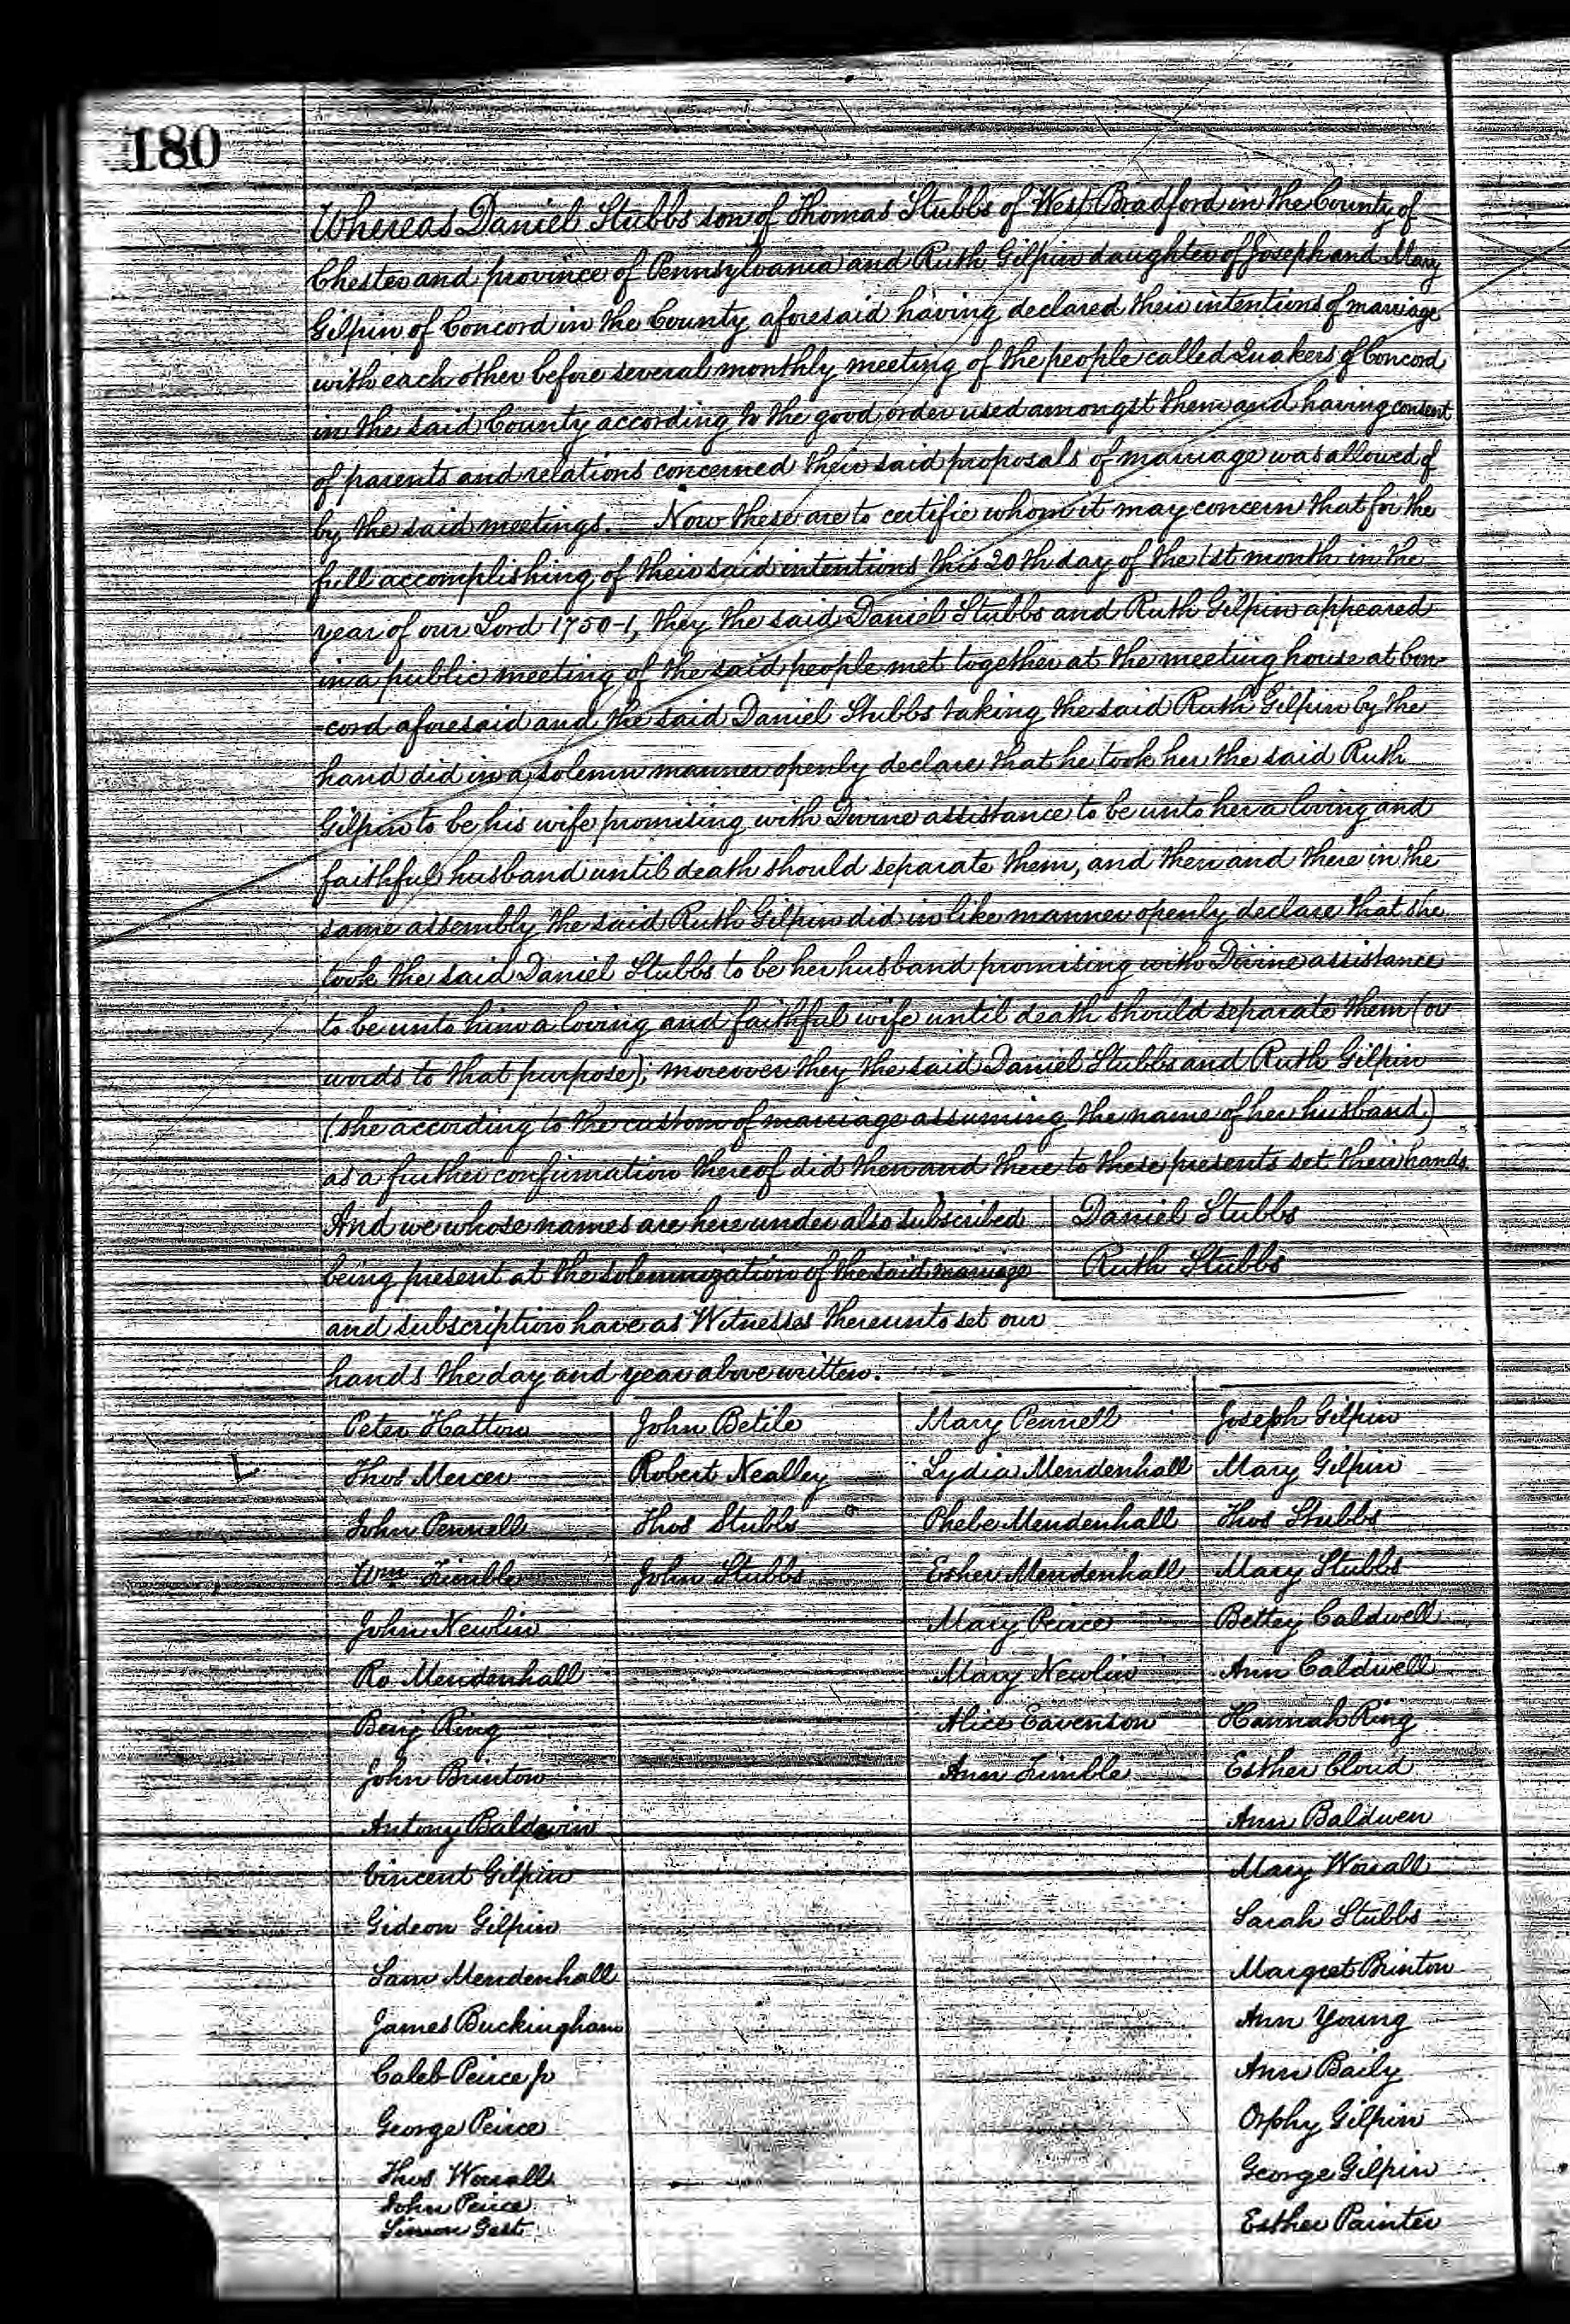 180
Whereas Daniel Stubbs son of Thomas Stubbs of West Bradford in the County of
Chester and province of Pennsylvania and Ruth Gilpin daughter of Joseph and Mary
Gilpin of Concord in the County aforesaid having declared their intentions of marriage
with each other before several monthly meeting of the people called Quakers of Concord
in the said County according to the good order used amongst them and having consent
of parents and relations concerned their said proposals of marriage was allowed of
by the said meetings. Now these are to certifie whom it may concern that for the
full accomplishing of their said intentions this 20th day of the 1st month in the
year of our Lord 1750-1, they the said Daniel Stubbs and Ruth Gilpin appeared
in a public meeting of the said people met together at the meeting house at Con-
-cord aforesaid and the said Daniel Stubbs taking the said Ruth Gilpin by the
hand did in a solemn manner openly declare that he took her the said Ruth
Gilpin to be his wife promising with Divine assistance to be unto her a loving and
faithful husband until death should separate them, and then and there in the
same assembly the said Ruth Gilpin did in like manner openly declare that she
took the said Daniel Stubbs to be her husband promising with Divine assistance
to be unto him a loving and faithful wife until death should separate them (or
words to that purpose); moreover they the said Daniel Stubbs and Ruth Gilpin
(she according to the custom of marriage assuming the name of her husband)
as a further confirmation thereof did then and there to these presents set their hands.
And we whose names are here under also subscribed Daniel Stubbs
being present at the solemnization of the said marriage Ruth Stubbs
and subscription have as Witnesses thereunto set our
hands the day and year above written.
Peter Hatton John Betile Mary Pennell Joseph Gilpin
Thos Mercer Robert Nealley Lydia Mendenhall Mary Gilpin
John Pennell Thos Stubbs Phebe Mendenhall Thos Stubbs
Wm Trimble John Stubbs Esher Mendenhall Mary Stubbs
John Newlin Mary Peirce Bettey Caldwell
Ro Mendenhall Mary Newlin Ann Caldwell
Benj Ring Alice Eavenson Hannah Ring
John Brinton Ann Trimble Esther Cloud
Antony Baldwin Ann Baldwen
Vincent Gilpin Mary Worrall
Gideon Gilpin Sarah Stubbs
Sam Mendenhall Margret Brinton
James Buckingham Ann Young
Caleb Peirce jr Ann Baily
George Peirce Orphy Gilpin
Thos Worrall George Gilpin
John Peirce
Simon Gest Esther Painter